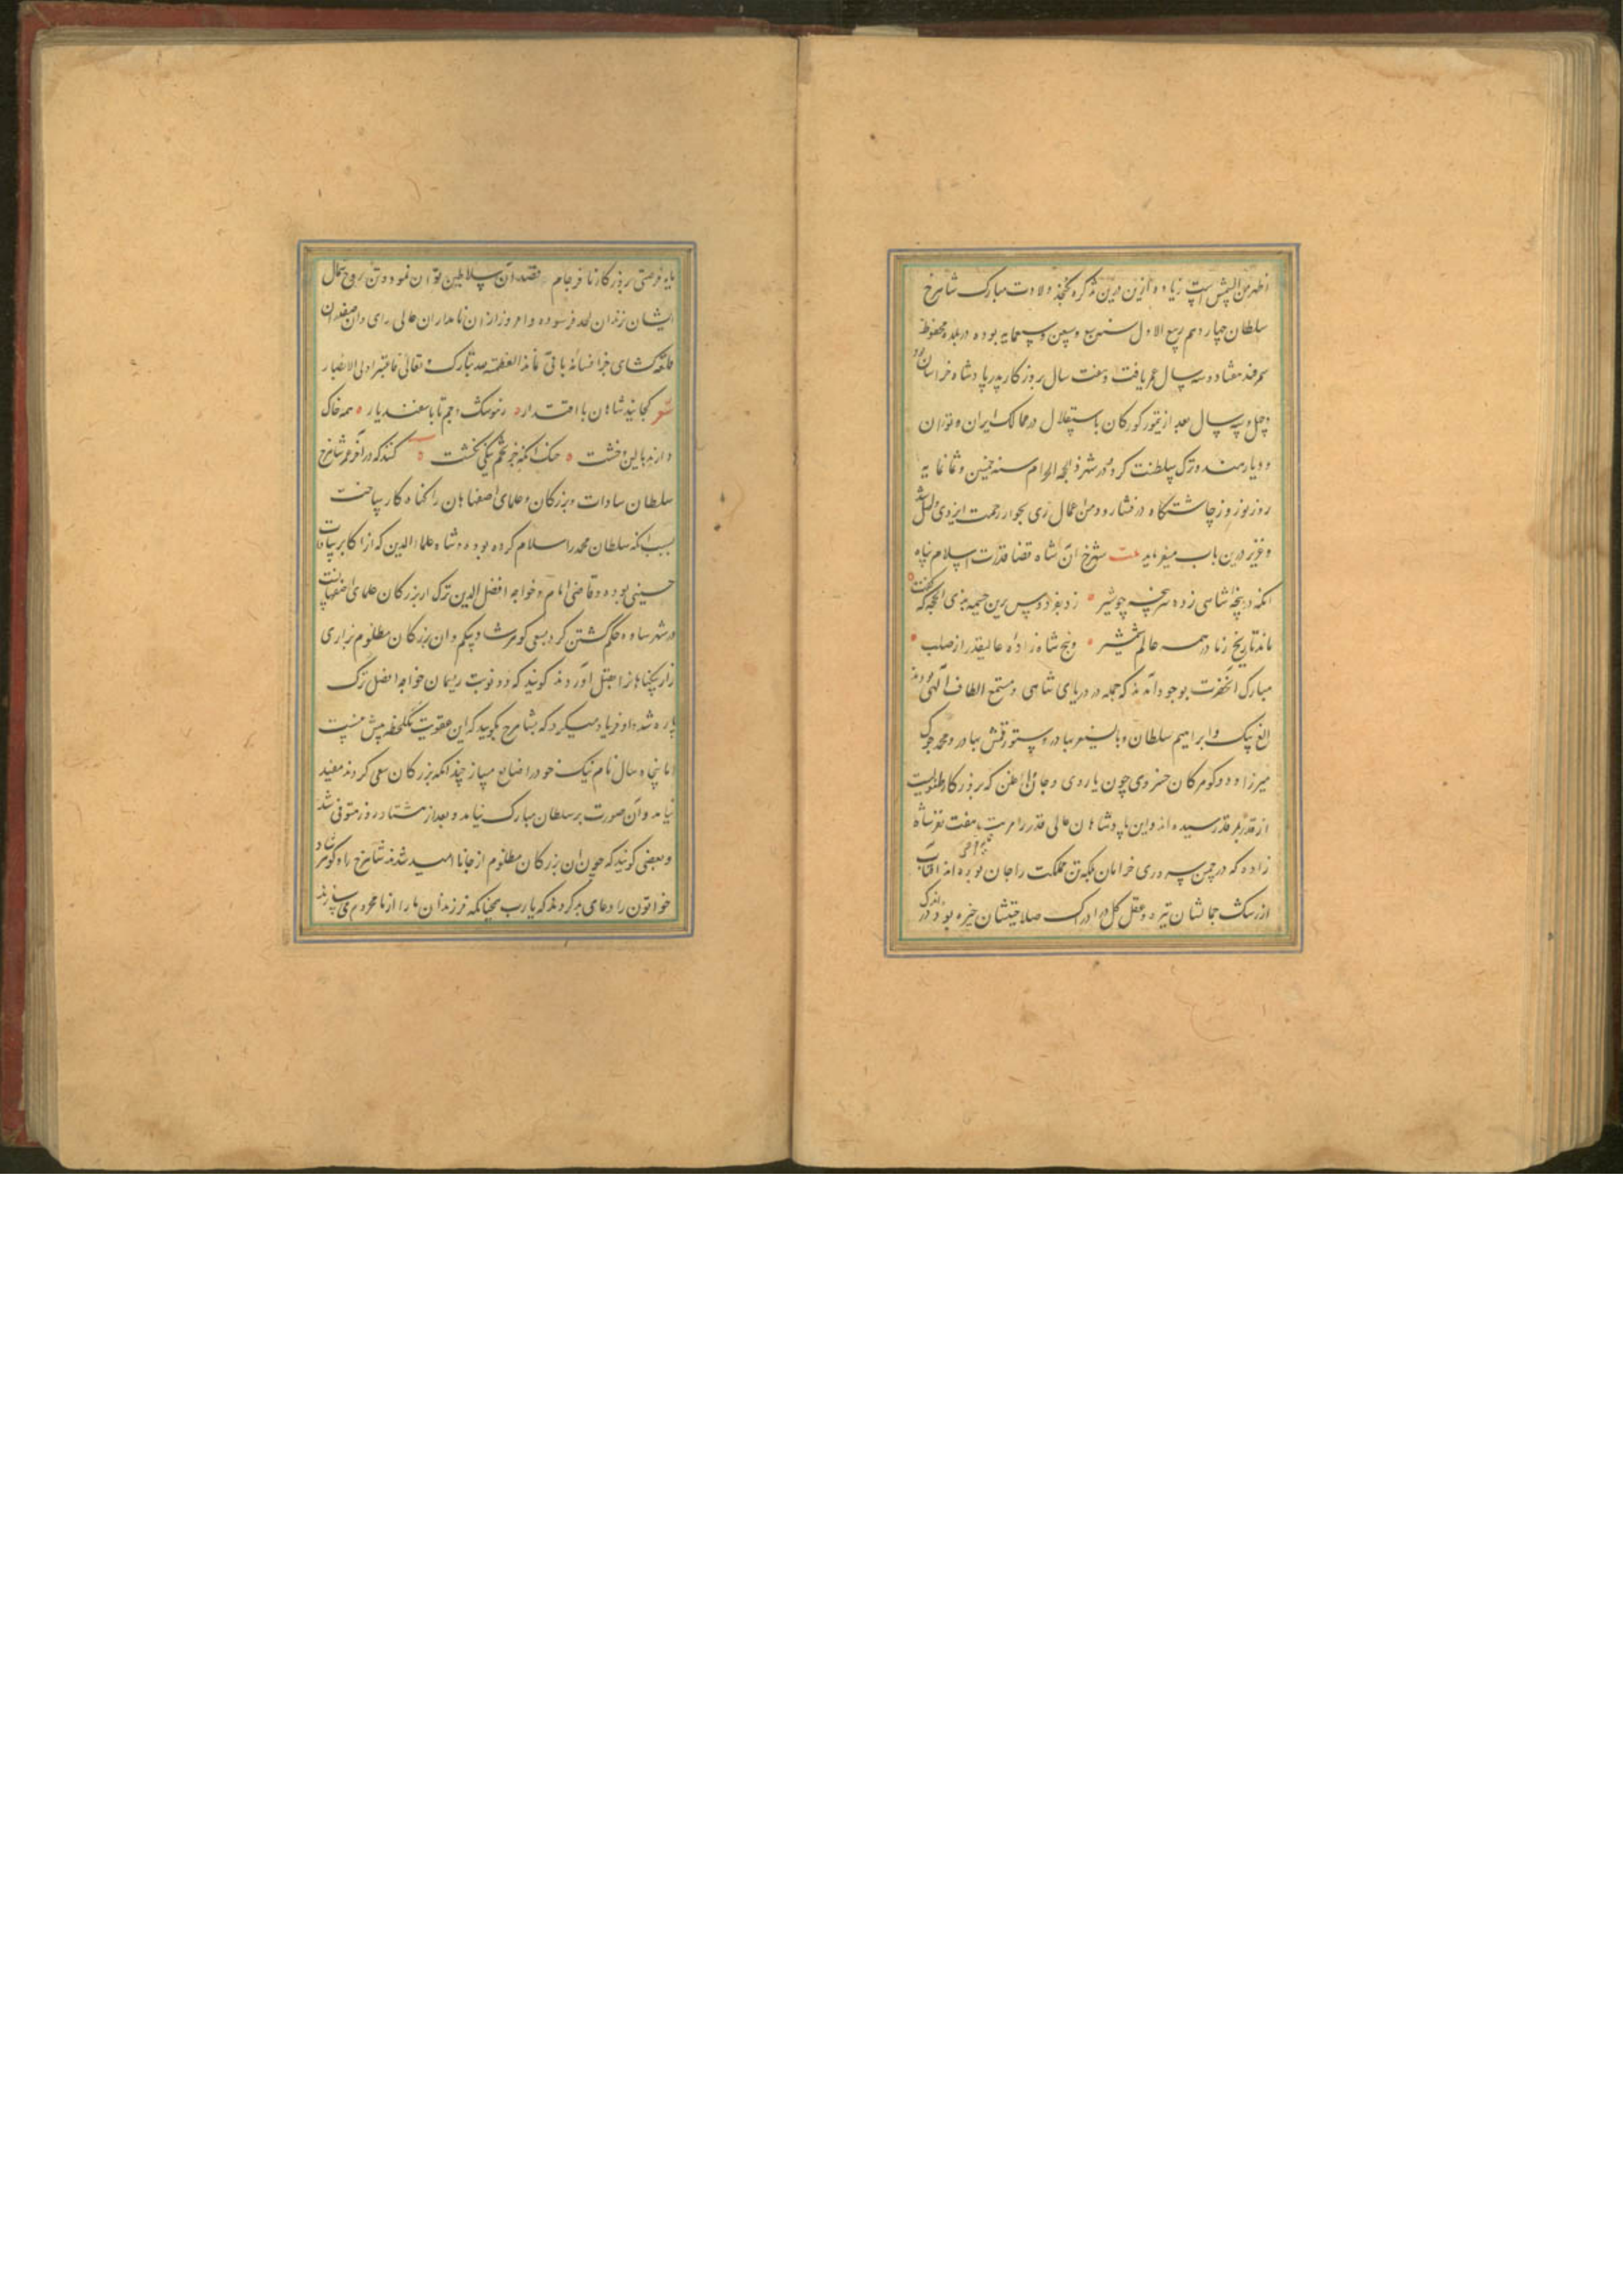 اظهر من الشمس است زیاده ازین درین تذکره نگنجد ولادت مبارک شاهرخ
سلطان چهاردهم ربیع الاول سنه وسبعین وسبعمایه بوده در بلده محفوظه
سمرقند هفتاد و سال عمر یافت وهفت سال بروزکار پدر پادشاه خراسان بود
وچهل وسه سال بعد از تیمور کورکان باستقلال در ممالک ایران وتوران
و دیار هند وترک سلطنت کرد ودر شهر ذالحجه الحرام سنه خمسین وثمانمایه
روز نوروز چاشتگاه در فشارود من اعمال ری بجوار رحمت ایزدی واصل شد
وعزیز درین باب میفرماید شهرخ آن شاه قضا قدرت اسلام پناه
آنکه در بیخه شاهی زده سرپنجه چو شیر زد بفردوس برین خیمه بذی الحجه که گفت
ماند تاریخ زما در همه عالم شمشیر وپنج شاه زاده عالیقدر از صلب
مبارک آنحضرت بوجود آمدند که جمله در دریای شاهی ومستجمع الطاف الهی بودند
الغ بیک وابراهیم سلطان وبایسنغر بهادر وسیورغتمش بهادر ومحمد جوکی
میرزا و دو کوهر کان خسروی چون یاردی وجان اغلن که بروزکار طفولیت
از قدر بقدر رسیده اند واین پادشاهان عالی قدر را مرتبه هفت نفر شاه
زاده که در چمن سروری خرامان بلکه تن مملکت را جان بوده اند آفتاب
از رشک جمالشان تیره وعقل کل در ادراک صلاحیتشان خیره بود واندک
فرصتی بروزکار نافرجام قصد آن سلاطین توران نمود وتن روح مثال
ایشان زندان لحد فرسوده وامروز از ان نامداران عالی رای وان صفدران
قلعه کشای جز افسانه باقی نمانده العظمة لله تبارک وتعالی فاعتبروا یا اولی الابصار
شعر کجایند شاهان با اقتدار زهوشنک وجم تا باسفندیار همه خاک
دارند بالین وخشت خنک آنکه جز تخم نیکی نکشت کنند که در آخر عمر شاهرخ
سلطان سادات وبزرکان وعلمای اصفهان را کناه کار ساخت
بسبب آنکه سلطان محمد را سلام کرده بودند وشاه علاء الدین که از اکابر سادات
حسینی بوده وقاضی امام وخواجه افضل الدین ترک از بزرکان علمای اصفهانست
در شهر ساوه حکم کشتن کرد بسعی کوهرشاد بیکم وان بزرکان مظلوم بزاری
زار بیکناهان را بقتل آوردند کویند که دو نوبت ریسمان خواجه افضل ترک
پاره شد واو فریاد میکرد که بشاهرخ بگویید که این عقوبت یک لحظه بیش نیست
اما پنجاه سال نام نیک خود را ضایع مساز چندانکه بزرکان سعی کردند مفید
نیامد وآن صورت بر سلطان مبارک نیامد وبعد از هشتاد روز متوفی شد
وبعضی کویند که چون آن بزرکان مظلوم از جان نا امید شدند شاهرخ را وکوهرشاد
خواتون را دعای بد کردند که یارب همچنانکه فرزندان ما را از ما محروم می سازند